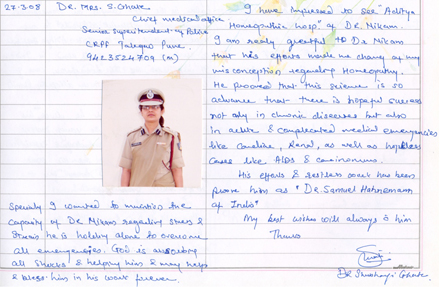 22-3-08 Dr. Mrs. S. Ghate
Chief medical office
Senior Superintendent of Police
CRPF Talegaon Pune.
9423524709 (M)
Specially I wanted to mention the
capacity of Dr Nikam regarding stress &
Strain he is holding alone to overcome
all emergencies. God is
all & helping him & may help
& bless him in his work forever.
I have impressed to see "Aditya
Homoeopathic hosp" of Dr. Nikam.
I am really greatful to Dr Nikam
that his efforts made me change of my
misconception regarding Homeopathy.
He prooved that this science is so
advance that there is hopeful success
not only in chronic diseases but also
in acute & complicated medical emergencies
like Cardiac, Renal, as well as hopeless
Cases like AIDS & carcinomas.
His efforts & restless work has been
prove him as "Dr. Samuel Hahnemann
of India"
My best wishes will always is him
Thanks
Dr Ghate